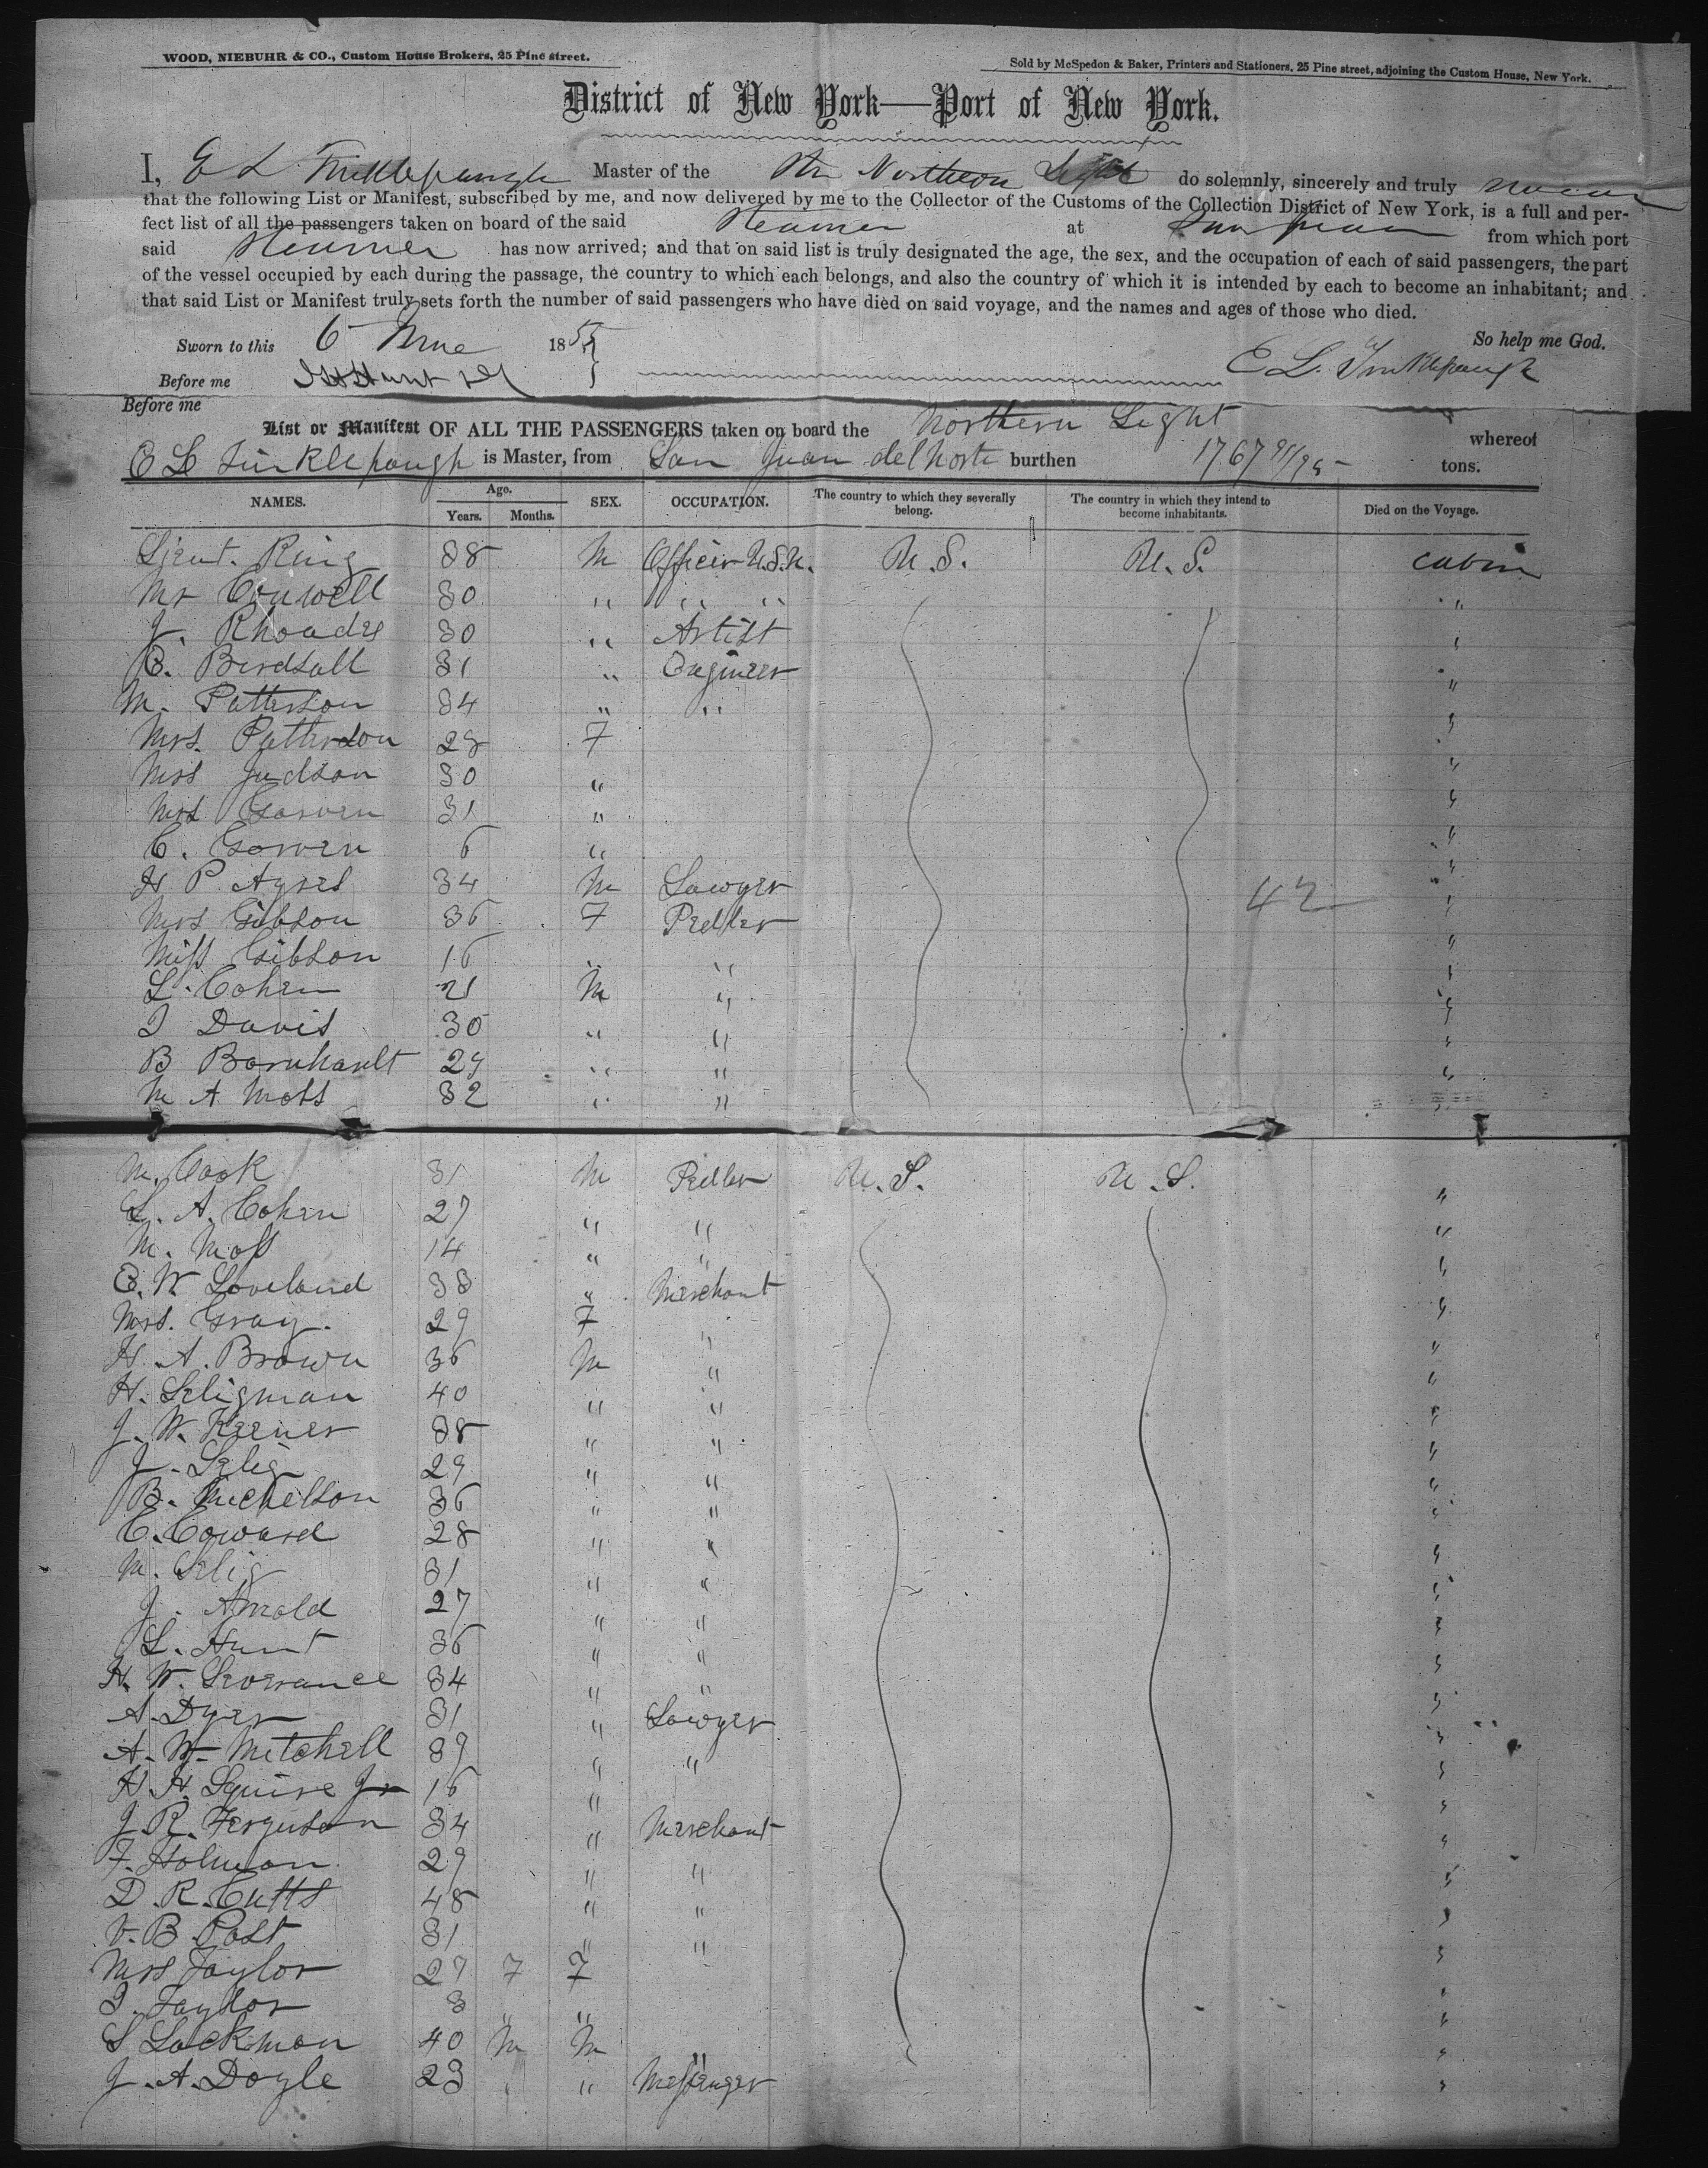 WOOD, NIEBUHR & CO., Custom House Brokers, 25 Pine street.
Sold by McSpedon & Baker, Printers and Stationers, 25 Pine street, adjoining the Custom House, New York.
District of New York—Port of New York.
I, E L Tinklepaugh Master of the Northern Light do solemnly, sincerely and truly swear
that the following List or Manifest, subscribed by me, and now delivered by me to the Collector of the Customs of the Collection District of New York, is a full and per-
fect list of all the passengers taken on board of the said Steamer at San Juan from which port
said Steamer has now arrived; and that on said list is truly designated the age, the sex, and the occupation of each of said passengers, the part
of the vessel occupied by each during the passage, the country to which each belongs, and also the country of which it is intended by each to become an inhabitant; and
that said List or Manifest truly sets forth the number of said passengers who have died on said voyage, and the names and ages of those who died.
So help me God.
Sworn to this 6 June 1855
E L. Tinklepaugh
Before me
Before me
List or Manifest OF ALL THE PASSENGERS taken on board the Northern Light whereof
E L Tinklepaugh is Master, from San Juan del Norte burthen 1767 91/95 tons.
NAMES. Age. Years. Months. SEX. OCCUPATION. The country to which they severally belong. The country in which they intend to become inhabitants. Died on the Voyage.
Lieut. Ring 38 M Officer U.S.N. U.S. U.S. cabin
Mr Conwell 30 " " " "
J. Rhoades 30 " Artist "
E. Birdsall 31 " Engineer "
M. Patterson 34 " " "
Mrs. Patterson 28 F "
Mrs Judson 30 " "
Mrs Gorven 31 " "
C. Gorven 6 " "
H P. Ayres 34 M Lawyer "
Mrs Gibson 36 F Pedler 42 "
Miss Gibson 16 " " "
L. Cohen 21 M " "
I Davis 30 " " "
B Barnhardt 29 " " "
M A Moss 32 " " "
M. Cook 31 M Pedler U.S. U.S. "
L. A. Cohen 27 " " "
M. Moss 14 " " "
E. W. Loveland 33 " Merchant "
Mrs. Gray. 29 F " "
H. A. Brown 36 M " "
H. Seligman 40 " " "
J. W. Keener 38 " " "
J. Selig 29 " " "
B. Michelson 36 " " "
C. Coward 28 " " "
M. Selig 31 " " "
J. Arnold 27 " " "
L. Hunt 36 " " "
H. W. Severance 34 " " "
A. Dyer 31 " Lawyer "
A. W. Mitchell 39 " " "
H. H. Squire Jr 16 " "
J. R. Ferguson 34 " Merchant "
F. Holman 29 " " "
D. R. Cutts 48 " " "
V. B. Post 31 " " "
Mrs Taylor 29 F F "
I. Taylor 3 " " "
S Lackman 40 M M " "
J. A. Doyle 23 " " Messenger "